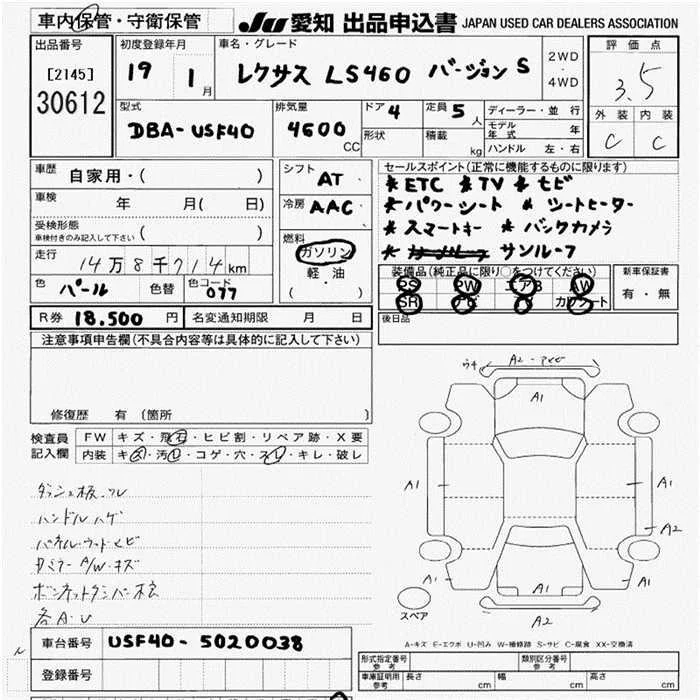 車内保管・守衛保管 JU 愛知 出品申込書 JAPAN USED CAR DEALERS ASSOCIATION
出品番号
[2145]
30612
初度登録年月
19 1月
車名・グレード
レクサス LS460 バージョン S
2WD
・
4WD
評価点
3.5
外装 内装
C C
型式
DBA-USF40
排気量
4600 CC
ドア 4
形状
定員 5人
積載 kg
ディーラー・並行
モデル年式 年
ハンドル 左・右
車歴 自家用・( )
車検 年 月( 日)
受検形態
車検付きのみ記入して下さい ( )
走行 14万8千714km
色 パール 色替 色コード 077
シフト AT
冷房 AAC
燃料
ガソリン
軽・油
( )
セールスポイント(正常に機能するものに限ります)
* ETC * TV * ナビ
* パワーシート * シートヒーター
* スマートキー * バックカメラ
* サンルーフ
装備品(純正品に限り○をつけてください)
PS PW エアB AW
SR ナビ TV カワシート
新車保証書
有・無
後日品
R券 18.500 円 名変通知期限 月 日
注意事項申告欄(不具合内容等は具体的に記入して下さい)
修復歴 有 (箇所 )
検査員記入欄
FW キズ・飛石・ヒビ割・リペア跡・X要
内装 キズ・汚レ・コゲ・穴・スレ・キレ・破レ
ダッシュ板・スレ
ハンドルハゲ
A2
A1
A1
A1
A1
A2
A1
A1
A1
A2
スペア
A-キズ E-エクボ U-凹み W-補修跡 S-サビ C-腐食 XX-交換済
車台番号 USF40-5020038
登録番号
形式指定番号
参考
類別区分番号
参考
車庫証明用
参考
長さ cm 幅 cm 高さ cm